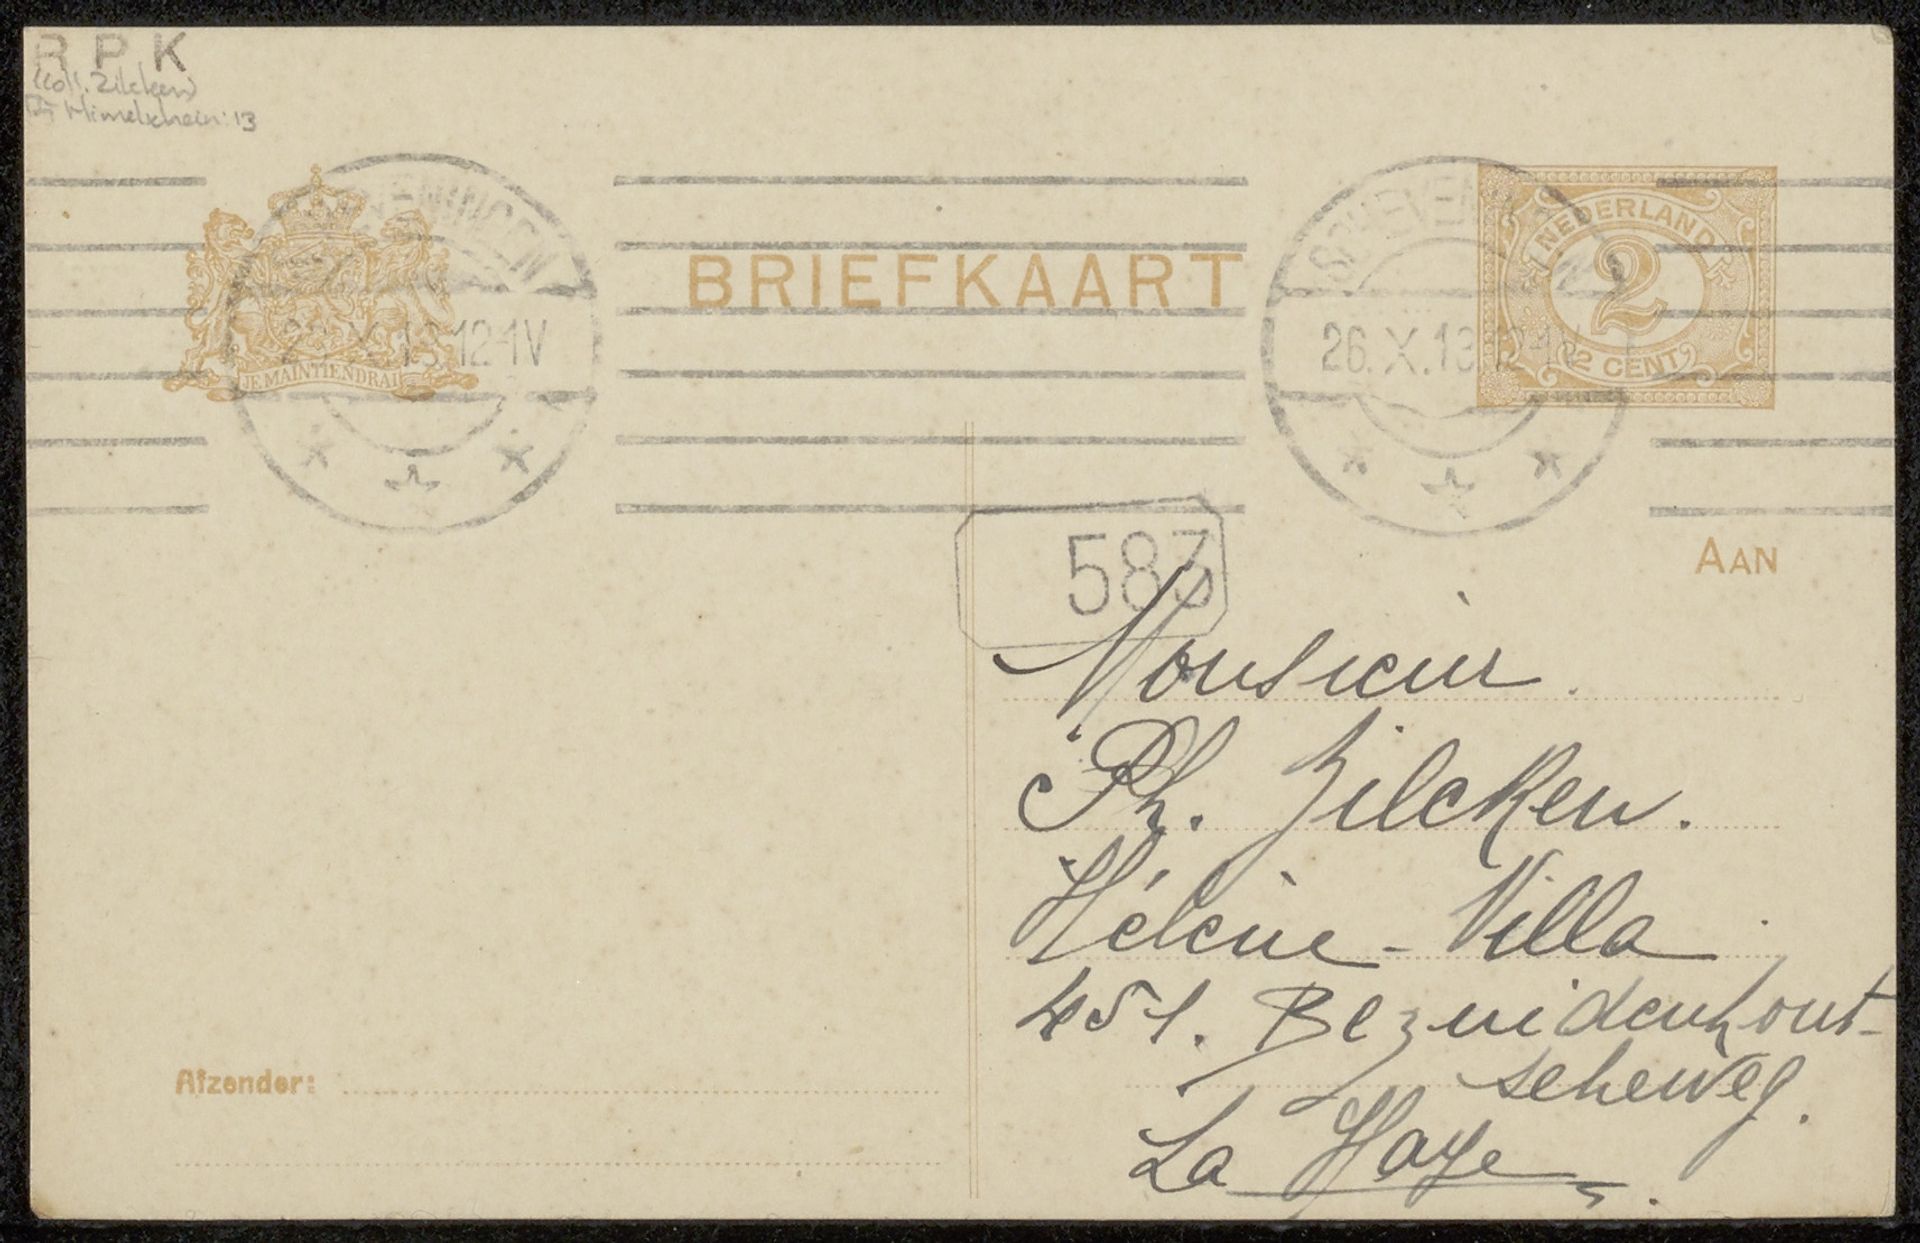 RPK
(Coll. Zilcken)
Himelschein: 13
SCHEVENINGEN
26.X.13.12-1V
JE MAINTIENDRAI
BRIEFKAART
SCHEVENINGEN
26.X.13 12-1V
NEDERLAND
2
2 CENT
AAN
583
Monsieur
Ph. Zilcken.
Hélène-Villa
451. Bezuidenhout-
scheweg.
La Haye
Afzender: